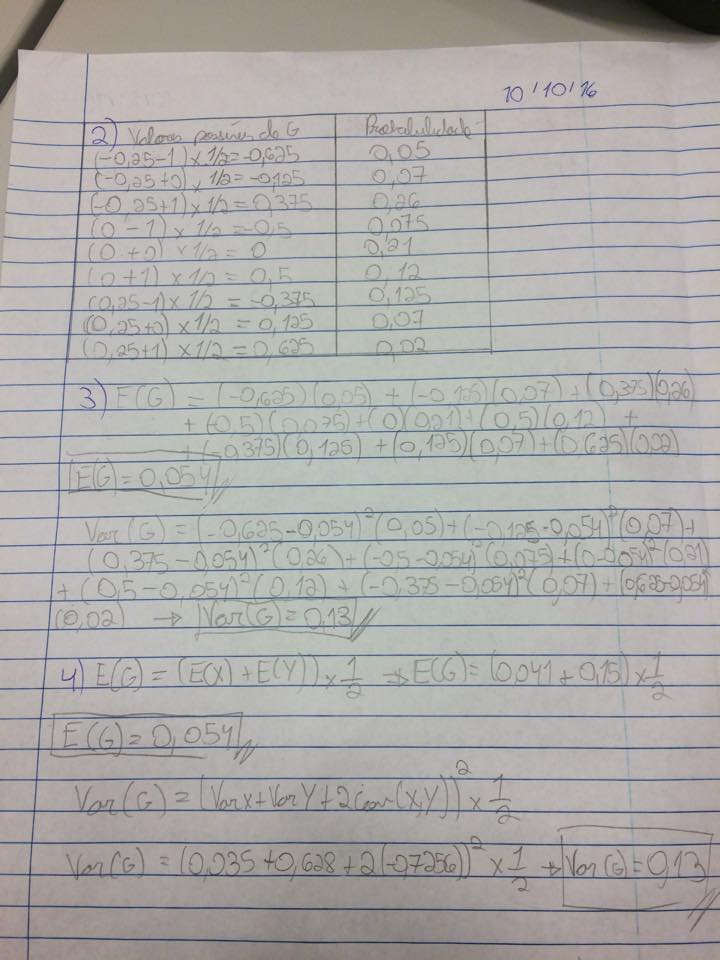 10/10/16
2) Valores possíveis de G Probabilidade
(-0,25-1) x 1/2 = -0,625 0,05
(-0,25+0) x 1/2 = -0,125 0,07
(-0,25+1) x 1/2 = 0,375 0,26
(0 -1) x 1/2 = -0,5 0,075
(0 +0) x 1/2 = 0 0,21
(0 +1) x 1/2 = 0,5 0,12
(0,25-1) x 1/2 = -0,375 0,125
(0,25+0) x 1/2 = 0,125 0,07
(0,25+1) x 1/2 = 0,625 0,02
3) E(G) = (-0,625)(0,05) + (-0,125)(0,07) + (0,375)(0,26)
+ (-0,5)(0,075) + (0)(0,21) + (0,5)(0,12) +
+ (-0,375)(0,125) + (0,125)(0,07) + (0,625)(0,02)
E(G) = 0,054
Var(G) = (-0,625-0,054)²(0,05) + (-0,125-0,054)²(0,07) +
(0,375-0,054)²(0,26) + (-0,5-0,054)²(0,075) + (0-0,054)²(0,21)
+ (0,5-0,054)²(0,12) + (-0,375-0,054)²(0,07) + (0,625-0,054)²
(0,02) → Var(G) = 0,13
4) E(G) = (E(X) + E(Y)) x 1/2 → E(G) = (0,041 + 0,15) x 1/2
E(G) = 0,054
Var(G) = (VarX + VarY + 2Cov(X,Y))² x 1/2
Var(G) = (0,035 + 0,628 + 2(-0,7256))² x 1/2 → Var(G) = 0,13